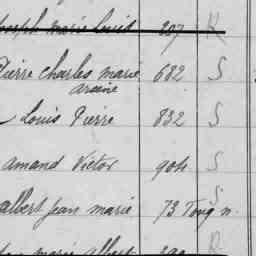 Joseph marie Louis 207 R
Pierre Charles marie 682 S
arsène
Louis Pierre 832 S
amand Victor 904 S
S
albert Jean marie 73 Tong n.
marie albert R